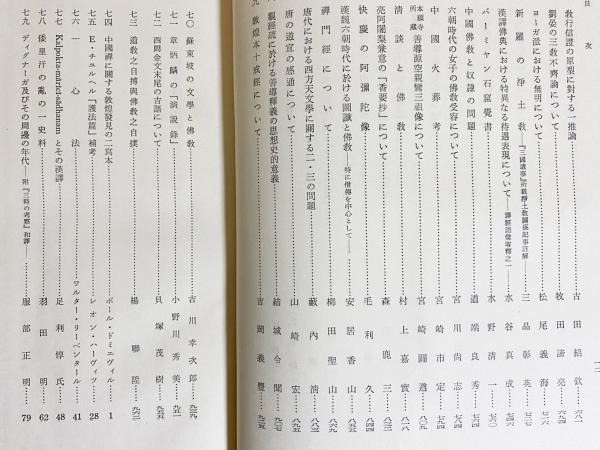 目次
教行信證の原型に對する一推論 吉田紹欽 六八一
劉晏の三教不齊論について 牧田諦亮 六九四
ヨーガ派における無明について 松尾義海 七一六
新羅の淨土教──『三國遺事』所載淨土教關係記事註解── 三品彰英 七二七
漢譯佛典における特異なる待遇表現について──譯經語彙零釋之一── 水谷眞成 七四六
バーミヤン石窟覺書 水野清一
中國佛教と奴隷の問題 道端良秀
六朝時代の女子の佛教受容について 宮川尚志
中國火葬考 宮崎市定
本願寺所藏 善導源空親鸞三祖像について 宮崎圓遵
清談と佛教 村上嘉實
亮阿闍梨兼意の「香要抄」について 森鹿三
快慶の阿彌陀像 毛利久 八四四
漢魏六朝時代に於ける圖讖と佛教──特に僧傳を中心として── 安居香山
禪門經について 柳田聖山
唐代における四方天文學に關する二・三の問題 藪內清 八八三
唐の道宣の感通について 山崎宏
觀經疏に於ける善導釋義の思想史的意義 結城令聞
六九 敦煌本十戒經について 吉岡義豐 九二五
七〇 蘇東坡の文學と佛教 吉川幸次郎 九三九
七一 章炳麟の「演說錄」 小野川秀美 九五一
七二 西周金文末尾の吉語について 貝塚茂樹
七三 道教之自搏與佛教之自撲 楊聯陞
七四 中國禪に關する敦煌發見の二寫本 ポール・ドミエヴィル 1
七五 E・チュルヘル『護法篇』補考 レオン・ハーヴィツ 28
七六 一心法 ワルター・リーベンタール 41
七七 Kalpokta-mārīcī-sādhanam とその漢譯 足利惇氏 48
七八 倭里汗の亂の一史料 羽田明 62
七九 ディグナーガ及びその周邊の年代──附『三時の考察』和譯── 服部正明 79